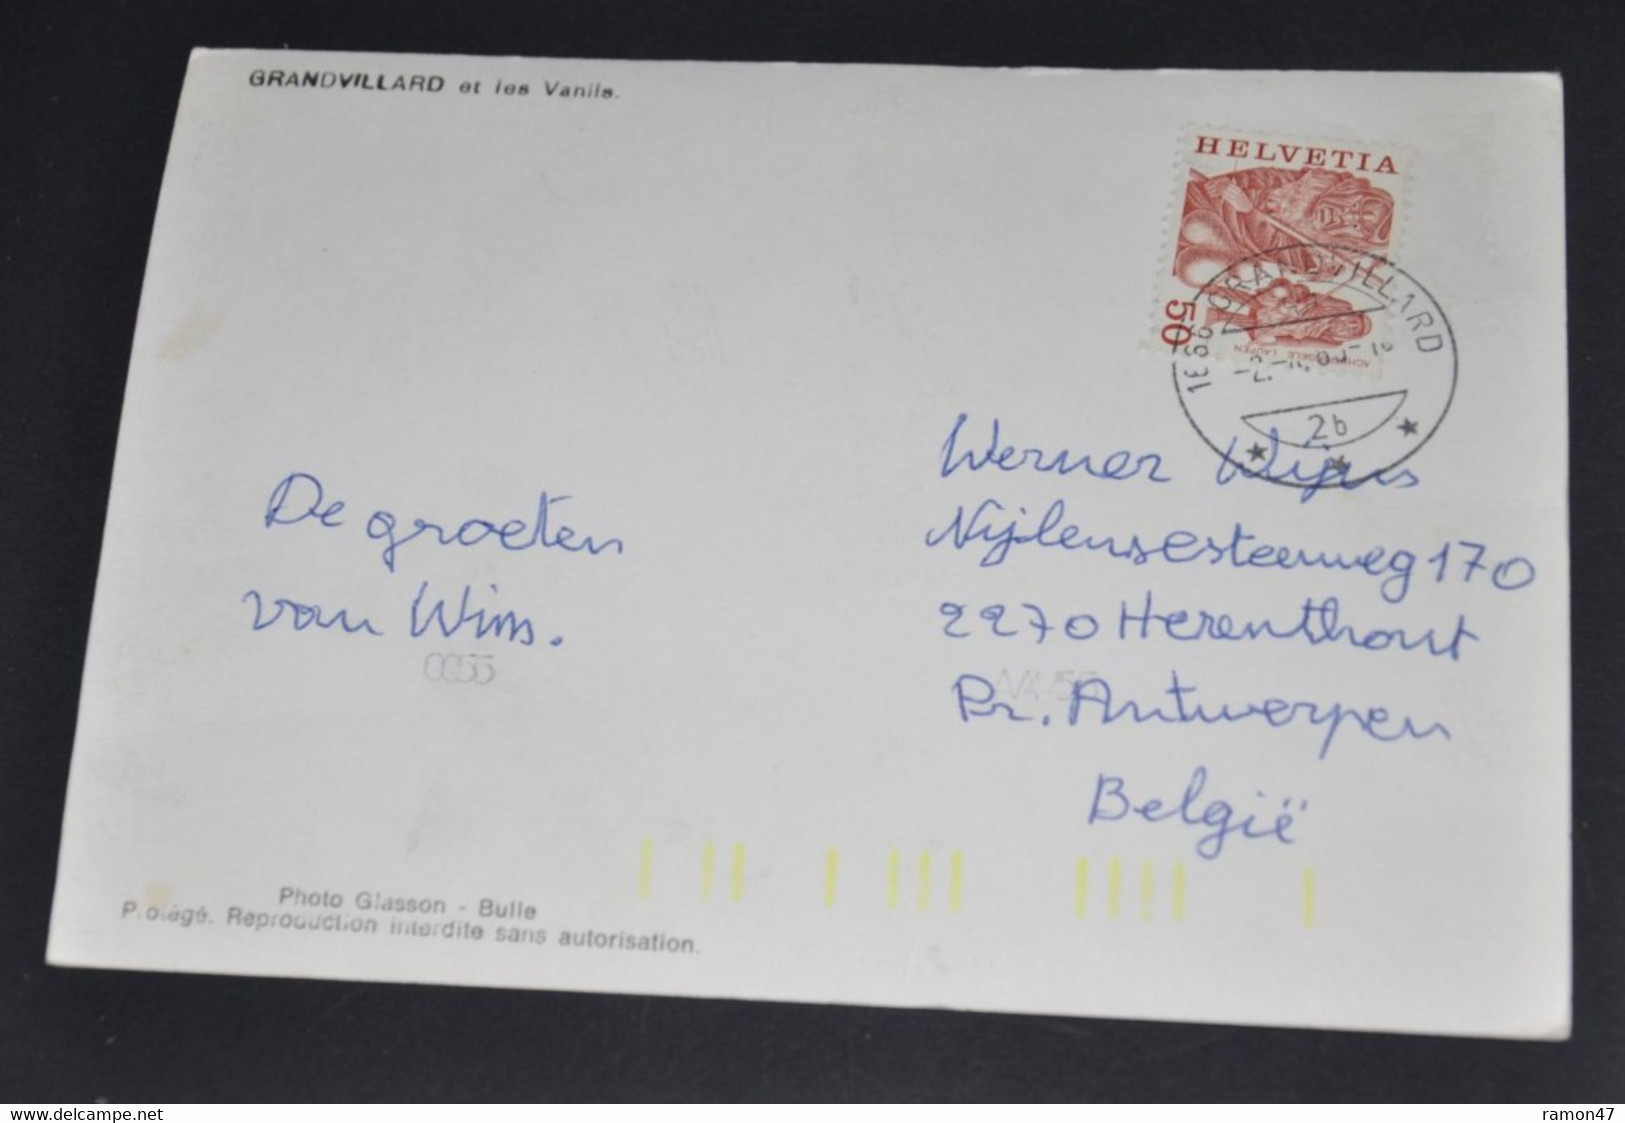 GRANDVILLARD et les Vanils.
HELVETIA
50
1666 GRANDVILLARD
2b
De groeten
van Wim.
0055
Werner Wijns
Nijlensesteenweg 170
2270 Herenthout
Pr. Antwerpen
België
Photo Glasson - Bulle
Protégé. Reproduction interdite sans autorisation.
www.delcampe.net
ramon47